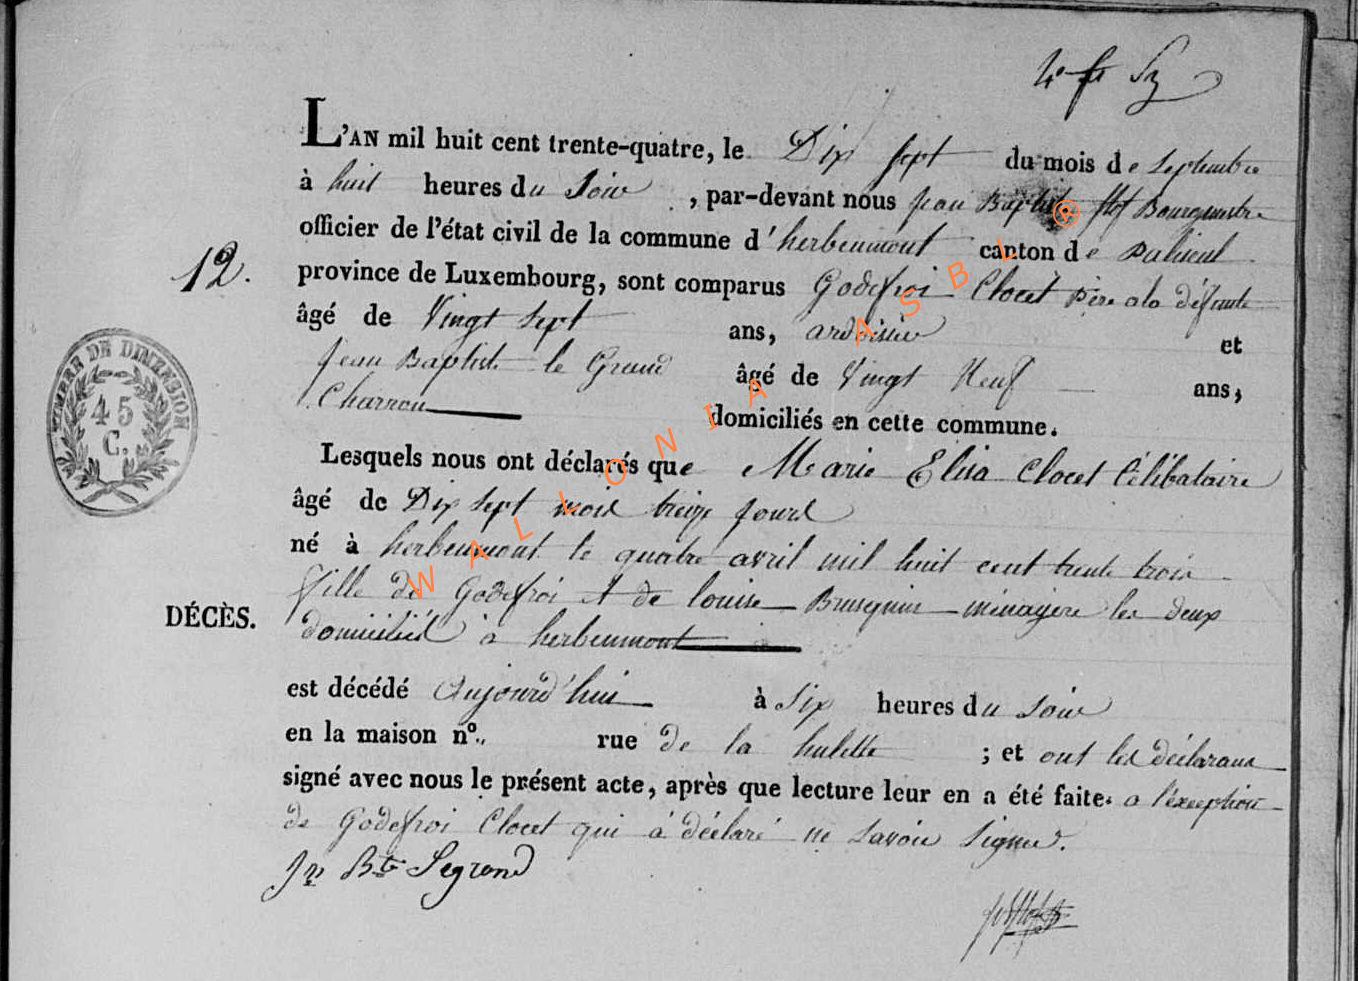 4e ft Sz
L'AN mil huit cent trente-quatre, le Dix Sept du mois de Septembre
à huit heures du Soir, par-devant nous jean Baptiste Bourguemestre
officier de l'état civil de la commune d'herbeumont canton de Paliseul
12.
province de Luxembourg, sont comparus Godefroi Clocet Père a la défunte
âgé de Vingt Sept ans, ardoisier et
Jean Baptiste le Grand âgé de Vingt Neuf ans,
Charron domiciliés en cette commune.
TIMBRE DE DIMENSION
45
C.
Lesquels nous ont déclarés que Marie Elisa Clocet Célibataire
âgé de Dix Sept mois treize jours
né à herbeumont le quatre avril mil huit cent trente trois
fille de Godefroi et de louise Brusquin ménagère les deux
DÉCÈS.
domiciliés à herbeumont
est décédé Aujourd'hui à Six heures du Soir
en la maison nº. rue de la hulette ; et ont les déclarans
signé avec nous le présent acte, après que lecture leur en a été faite. a l'exception
de Godefroi Clocet qui à déclaré ne savoir signer.
Jn Bte Legrand
WALLONIA ASBL ®